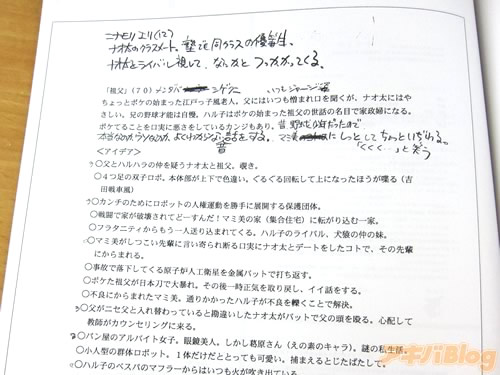 ニナモリ エリ(12)
ナオ太のクラスメート。塾でも同クラスの優等生。
ナオ太とライバル視して、なにかと つっかかってくる。
「祖父」(70) シゲクニ いつもジャージ姿
ちょっとボケの始まった江戸っ子風老人。父にはいつも憎まれ口を聞くが、ナオ太にはや
さしい。兄の野球才能は自慢。ハル子はボケの始まった祖父の世話の名目で家政婦になる。
ボケてることを口実に悪さをしているカンジもあり。昔、野球少年だったので
マミ美にしっとしてちょっといぢわる。
「くくく…」と笑う
<アイデア>
○父とハルハラの仲を疑うナオ太と祖父。覗き。
○4つ足の双子ロボ。本体部が上下で色違い。ぐるぐる回転して上になったほうが喋る(吉
田戦車風)
○カンチのためにロボットの人権運動を勝手に展開する保護団体。
○戦闘で家が破壊されてどーすんだ!マミ美の家(集合住宅)に転がり込む一家。
○フラタニティからもう一人送り込まれてくる。ハル子のライバル、犬猿の仲の妹。
○マミ美がしつこい先輩に言い寄られ断る口実にナオ太とデートをしたコトで、その先輩
にからまれる。
○事故で落下してくる原子力人工衛星を金属バットで打ち返す。
○ボケた祖父が日本刀で大暴れ。その後一時正気を取り戻し、イイ話をする。
○不良にからまれたマミ美。通りかかったハル子が不良を轢くことで解決。
○父がニセ父と入れ替わっていると勘違いしたナオ太がバットで父の頭を殴る。心配して
教師がカウンセリングに来る。
○パン屋のアルバイト女子。眼鏡美人。しかし葛原さん(えの素のキャラ)。謎の私生活。
○小人型の群体ロボット。1体だけだととっても可愛い。捕まえるとじたばたして。
○ハル子のベスパのマフラーからはいつも火が吹き出ている
アキバBlog